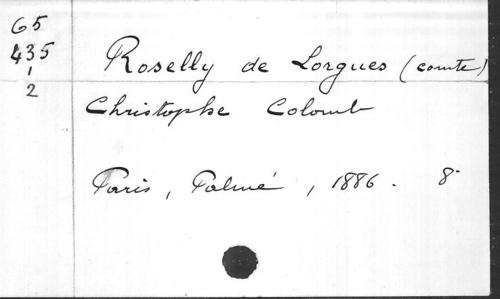 65
435
1
2
Roselly de Lorgues (comte)
Christophe Colomb
Paris, Palmé, 1886. 8°